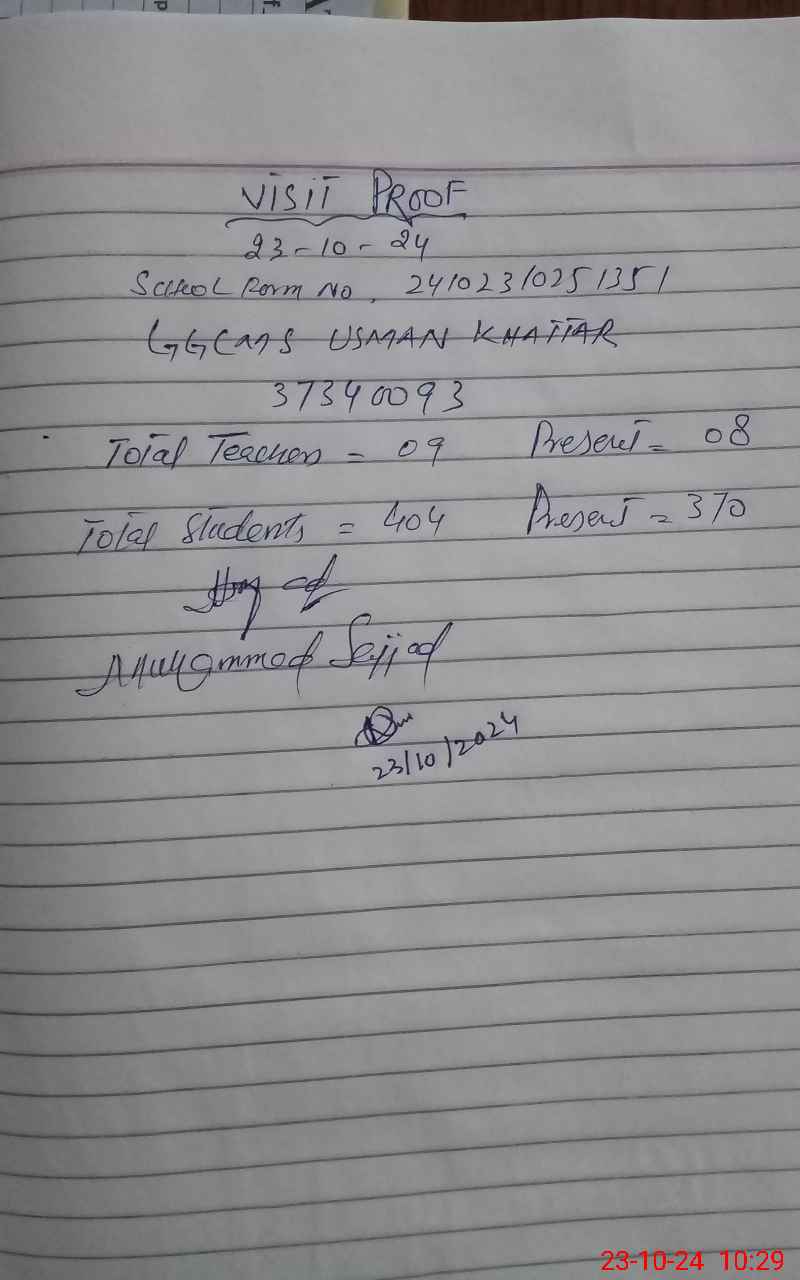 VISIT PROOF
23-10-24
School Form No. 24102310251351
GGCMS USMAN KHATTAR
37340093
Total Teachers = 09 Present = 08
Total Students = 404 Present = 370
Muhammad Sajjad
23/10/2024
23-10-24 10:29